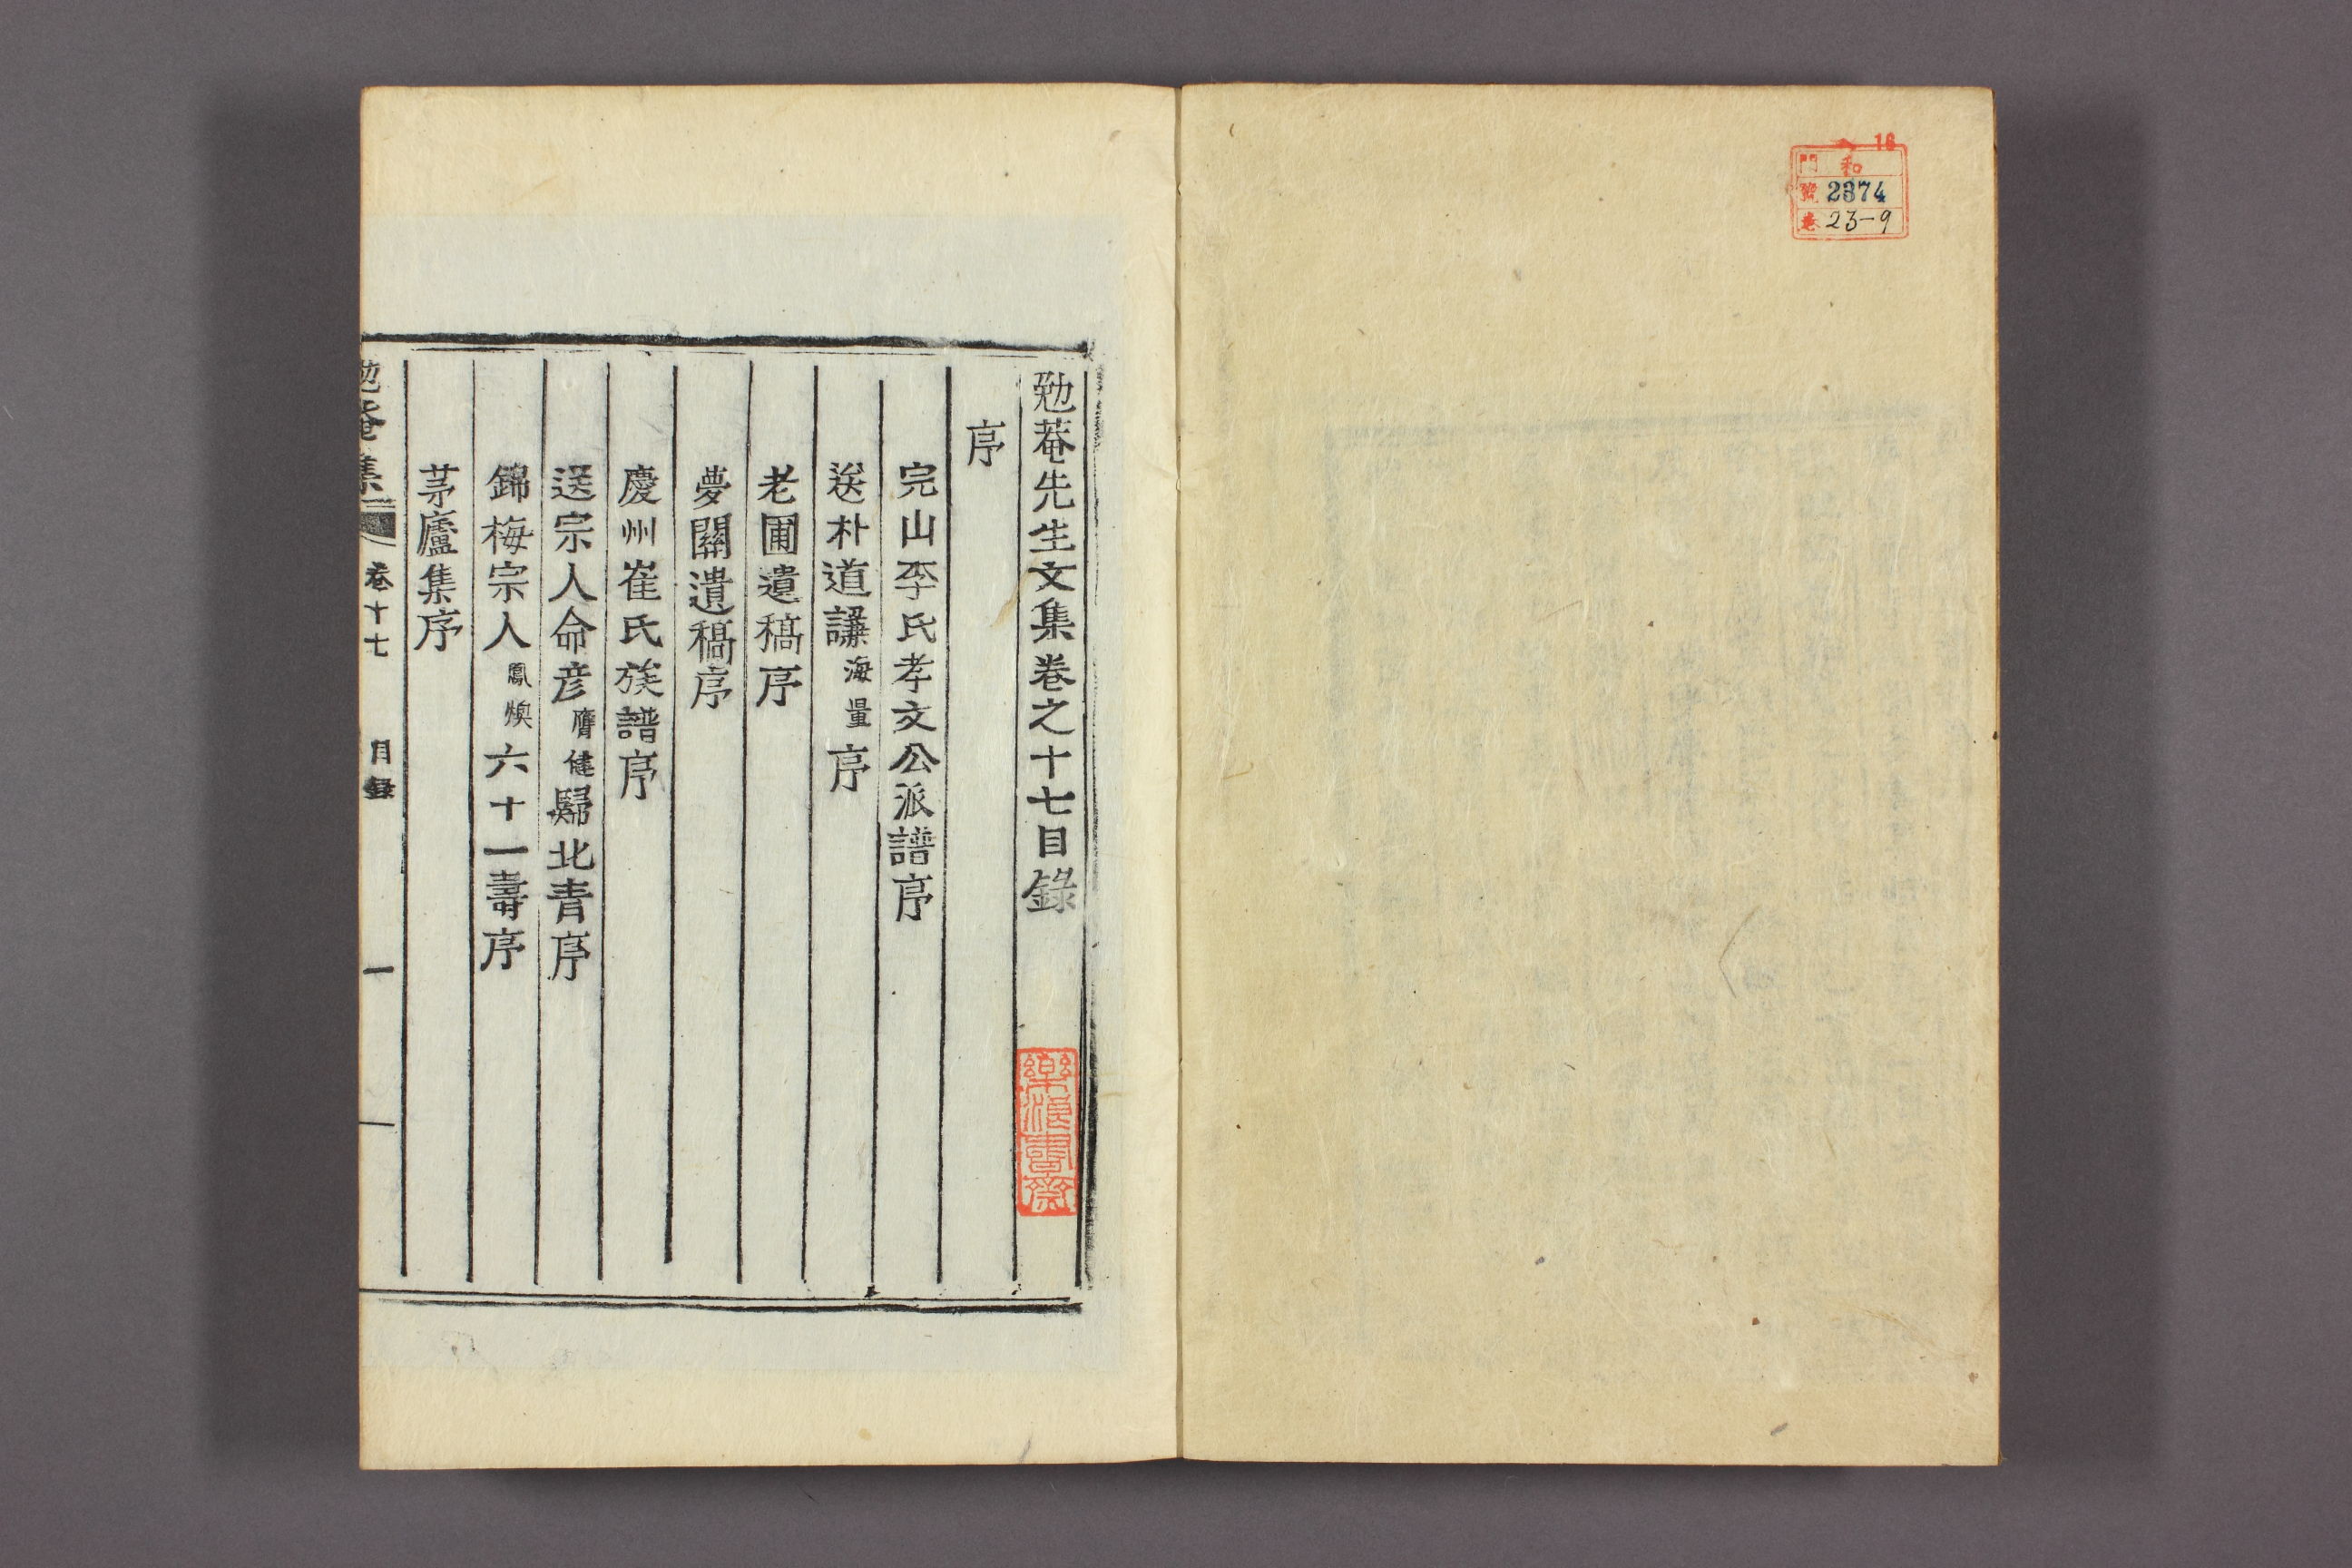 16
門 和
號 2374
卷 23-9
勉菴先生文集卷之十七目錄
序
完山李氏孝文公派譜序
送朴道謙海量序
老圃遺稿序
夢關遺稿序
慶州崔氏族譜序
送宗人命彦膺健歸北青序
錦梅宗人鳳煥六十一壽序
茅廬集序
勉菴集 卷十七 目錄 一
樂浪書齋